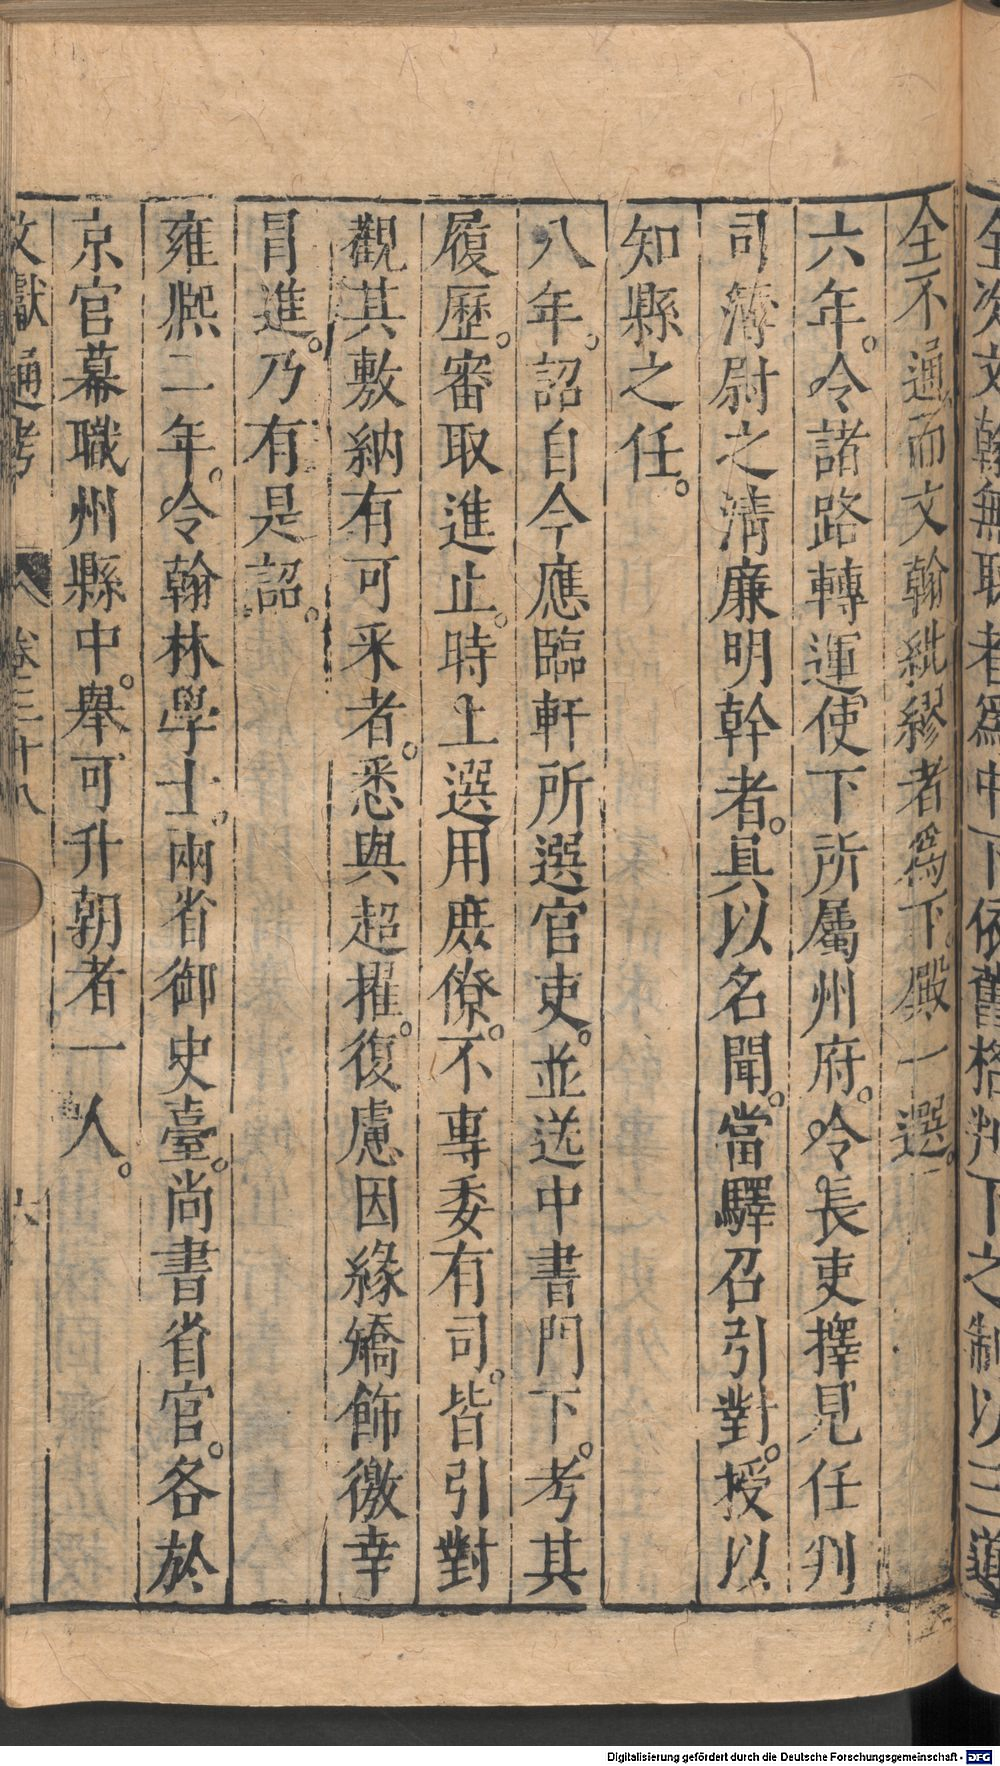 全次文翰無取者爲中下依舊格判下之制以三道
全不通而文翰紕繆者爲下殿一選。
六年。令諸路轉運使下所屬州府。令長吏擇見任判
司簿尉之淸廉明幹者。具以名聞。當驛召引對。授以
知縣之任。
八年。詔自今應臨軒所選官吏。並送中書門下。考其
履歷。審取進止。時上選用庶僚。不專委有司。皆引對
觀其敷納有可采者。悉與超擢。復慮因緣矯飾徼幸
冒進。乃有是詔。
雍熙二年。令翰林學士。兩省御史臺。尚書省官。各於
京官幕職州縣中。舉可升朝者一人。
文獻通考 卷三十八 六
Digitalisierung gefördert durch die Deutsche Forschungsgemeinschaft - DFG